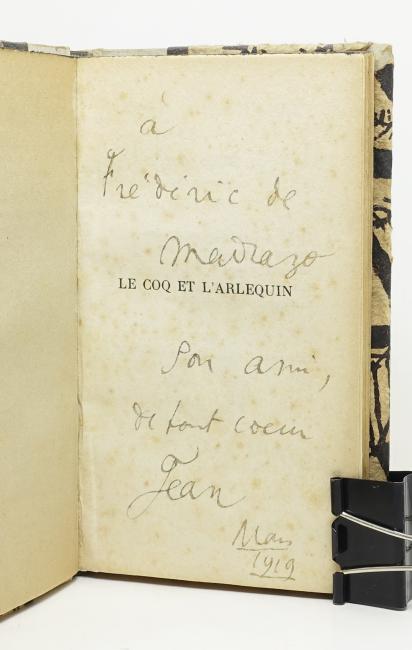 à
Frédéric de
Madrazo
LE COQ ET L'ARLEQUIN
Son ami,
de tout coeur
Jean
Mars
1919